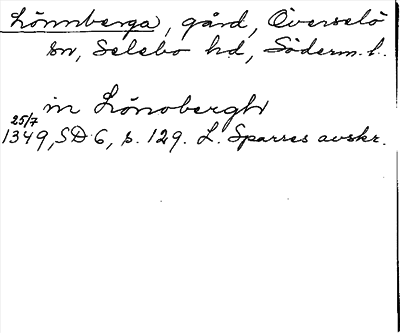 Lönnberga, gård, Överselö
sn, Selebo hd, Söderm. l.
in Lönobergh
25/7
1349, SD 6, s. 129. L. Sparres avskr.